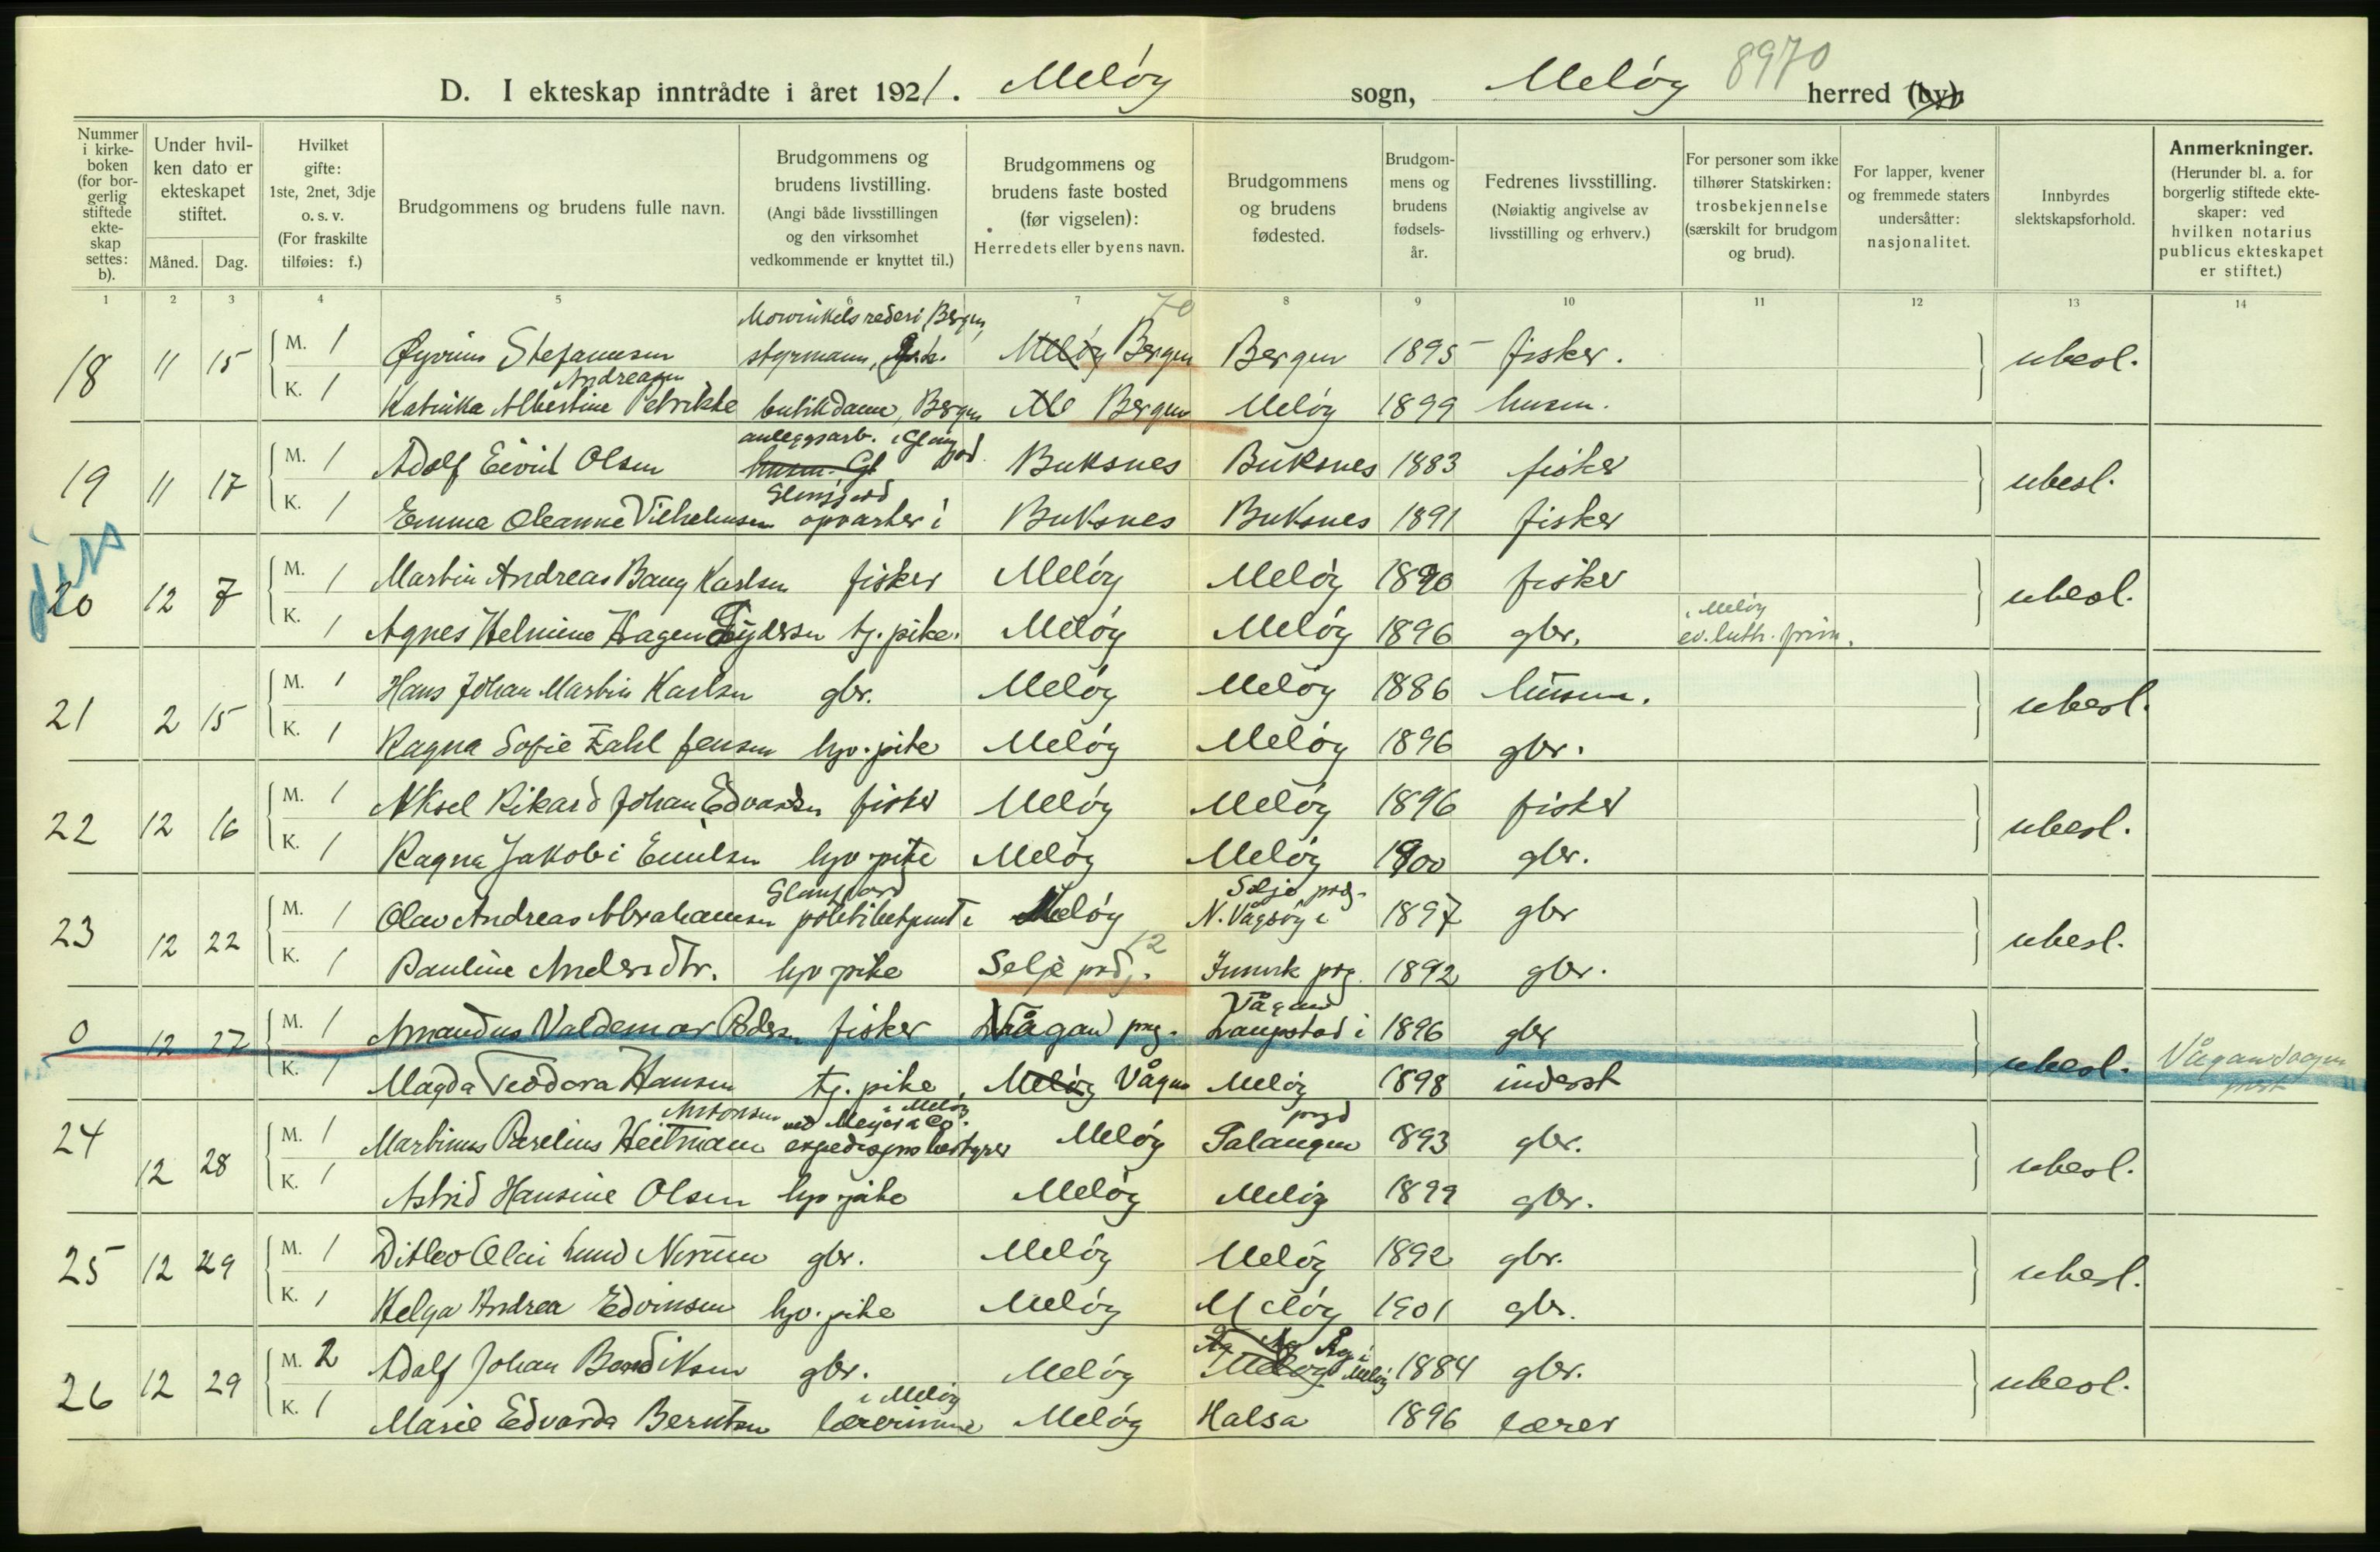 D. I ekteskap inntrådte i året 1921. Meløy sogn, Meløy 8970 herred (by).
Nummer i kirkeboken (for borgerlig stiftede ekteskap settes: b).
Under hvilken dato er ekteskapet stiftet.
Måned. Dag.
Hvilket gifte: 1ste, 2net, 3dje o. s. v. (For fraskilte tilføies: f.)
Brudgommens og brudens fulle navn.
Brudgommens og brudens livstilling. (Angi både livsstillingen og den virksomhet vedkommende er knyttet til.)
Brudgommens og brudens faste bosted (før vigselen): Herredets eller byens navn.
Brudgommens og brudens fødested.
Brudgommens og brudens fødselsår.
Fedrenes livsstilling. (Nøiaktig angivelse av livsstilling og erhverv.)
For personer som ikke tilhører Statskirken: trosbekjennelse (særskilt for brudgom og brud).
For lapper, kvener og fremmede staters undersåtter: nasjonalitet.
Innbyrdes slektskapsforhold.
Anmerkninger. (Herunder bl. a. for borgerlig stiftede ekteskaper: ved hvilken notarius publicus ekteskapet er stiftet.)
1 2 3 4 5 6 7 8 9 10 11 12 13 14
Mowinkels rederi Bergen, 70
18 11 15 M. 1 Øyvinn Stefanussen styrmann, Meløy Bergen Bergen 1895 fisker. ubesl.
Andreasen
K. 1 Katinka Albertine Petrikke butikdame, Bergen Me Bergen Meløy 1899 husm.
anleggsarb. i Glomfjord
19 11 17 M. 1 Adolf Eivind Olsen husm. Gl Buksnes Buksnes 1883 fisker ubesl.
Glomfjord
K. 1 Emma Oleanne Vilhelmsen opvarter i Buksnes Buksnes 1891 fisker
20 12 7 M. 1 Martin Andreas Bang Karlsen fisker Meløy Meløy 1890 fisker ubesl.
i Meløy
K. 1 Agnes Helmine Hagen Tydersen tj. pike. Meløy Meløy 1896 gbr. ev. luth. frim.
21 2 15 M. 1 Hans Johan Martin Karlsen gbr. Meløy Meløy 1886 husm. ubesl.
K. 1 Ragna Sofie Zahl Jensen hjv. pike Meløy Meløy 1896 gbr.
22 12 16 M. 1 Aksel Rikard Johan Edvardsen fisker Meløy Meløy 1896 fisker ubesl.
K. 1 Ragna Jakobi Emilsen hjv pike Meløy Meløy 1900 gbr.
Glomfjord Selje prg.
23 12 22 M. 1 Olav Andreas Abrahamsen politibetjent i Meløy N. Vågsøy i 1897 gbr ubesl.
12
K. 1 Pauline Andersdtr. hjv pike Selje prgj. Innvik prg. 1892 gbr.
Vågan
0 12 27 M. 1 Amandus Valdemar Pedersen fisker Vågan prg. Laupstad i 1896 gbr ubesl. Vågan sogn
K. 1 Magda Teodora Hansen tj. pike Meløy Vågan Meløy 1898 inderst
Antonsen ved Meyer & Co. i Meløy prgd
24 12 28 M. 1 Martinus Parelius Heitmann expedisjonsbestyrer Meløy Salangen 1893 gbr. ubesl.
K. 1 Astrid Hansine Olsen hjv pike Meløy Meløy 1899 gbr.
25 12 29 M. 1 Ditlev Olai Lund Nerum gbr. Meløy Meløy 1892 gbr. ubesl.
K. 1 Helga Andrea Edvinsen hjv. pike Meløy Meløy 1901 gbr.
Åg i
26 12 29 M. 2 Adolf Johan Bendiksen gbr. Meløy Meløy Meløy 1884 gbr. ubesl.
i Meløy
K. 1 Marie Edvarda Berntsen lærerinne Meløy Halsa 1896 lærer